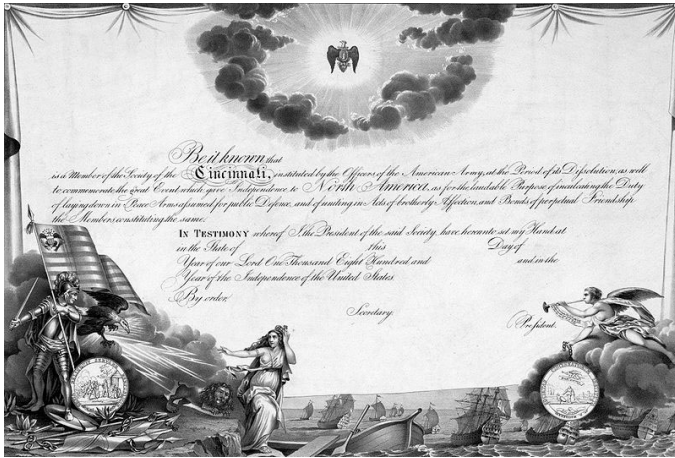 Be it known that
is a Member of the Society of the Cincinnati, instituted by the Officers of the American Army, at the Period of its Dissolution, as well
to commemorate the great Event which gave Independence to North America, as for the laudable Purpose of inculcating the Duty
of laying down in Peace Arms assumed for public Defence, and of uniting in Acts of brotherly Affection, and Bonds of perpetual Friendship
the Members constituting the same.
IN TESTIMONY whereof I the President of the said Society, have hereunto set my Hand at
in the State of this Day of
Year of our Lord One Thousand Eight Hundred and and in the
Year of the Independence of the United States.
By order,
Secretary.
President.